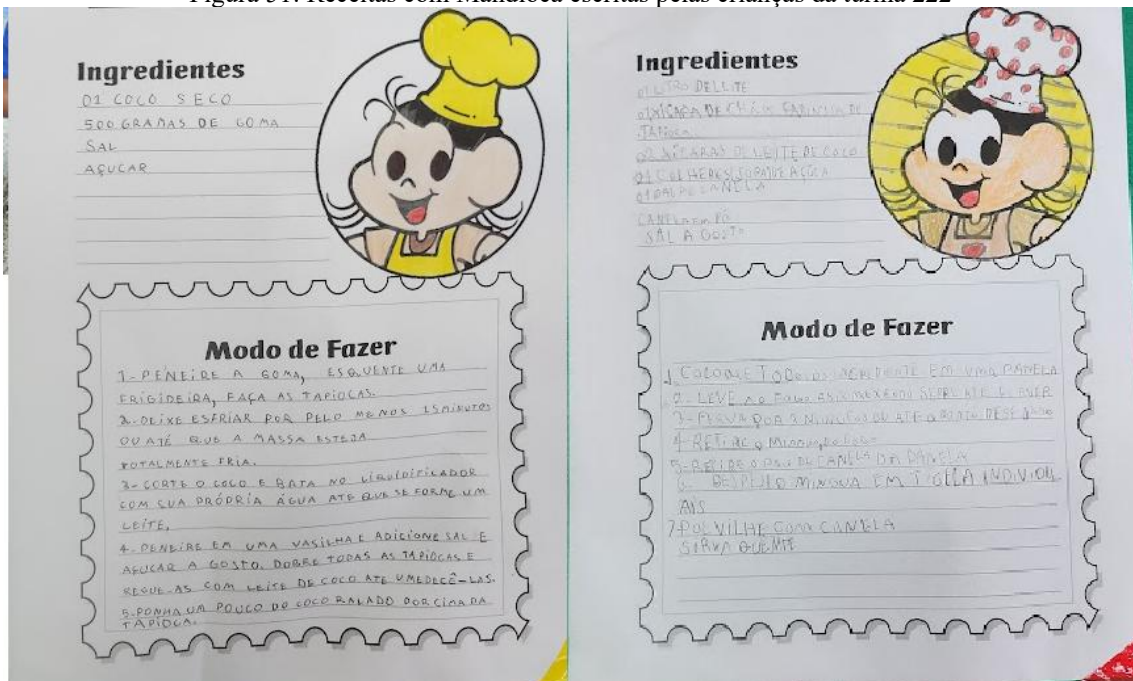 Figura 31: Receitas com Mandioca escritas pelas crianças da turma 222
Ingredientes
01 COCO SECO
500 GRAMAS DE GOMA
SAL
AÇUCAR
Modo de Fazer
1-PENEIRE A GOMA, ESQUENTE UMA
FRIGIDEIRA, FAÇA AS TAPIOCAS.
2-DEIXE ESFRIAR POR PELO MENOS 15MINUTOS
OU ATÉ QUE A MASSA ESTEJA
TOTALMENTE FRIA.
3-CORTE O COCO E BATA NO LIQUIDIFICADOR
COM SUA PRÓPRIA ÁGUA ATE QUE SE FORME UM
LEITE.
4-PENEIRE EM UMA VASILHA E ADICIONE SAL E
AÇUCAR A GOSTO. DOBRE TODAS AS TAPIOCAS E
REGUE-AS COM LEITE DE COCO ATE UMEDECÊ-LAS.
5-PONHA UM POUCO DO COCO RALADO POR CIMA DA
TAPIOCA.
Ingredientes
01 LITRO DE LEITE
DE
TAPIOCA
02 XÍCARAS DE LEITE DE COCO
01
CANELA EM PÓ
SAL A GOSTO
Modo de Fazer
1 COLOQUE EM UMA PANELA
2-LEVE AO FOGO
3-FERVA POR 2 MINUTOS OU ATE O PONTO
4-RETIRE O
5- O PAU DE CANELA DA PANELA
6 O MINGUA EM
AIS
7-POLVILHE COM CANELA
SIRVA QUENTE